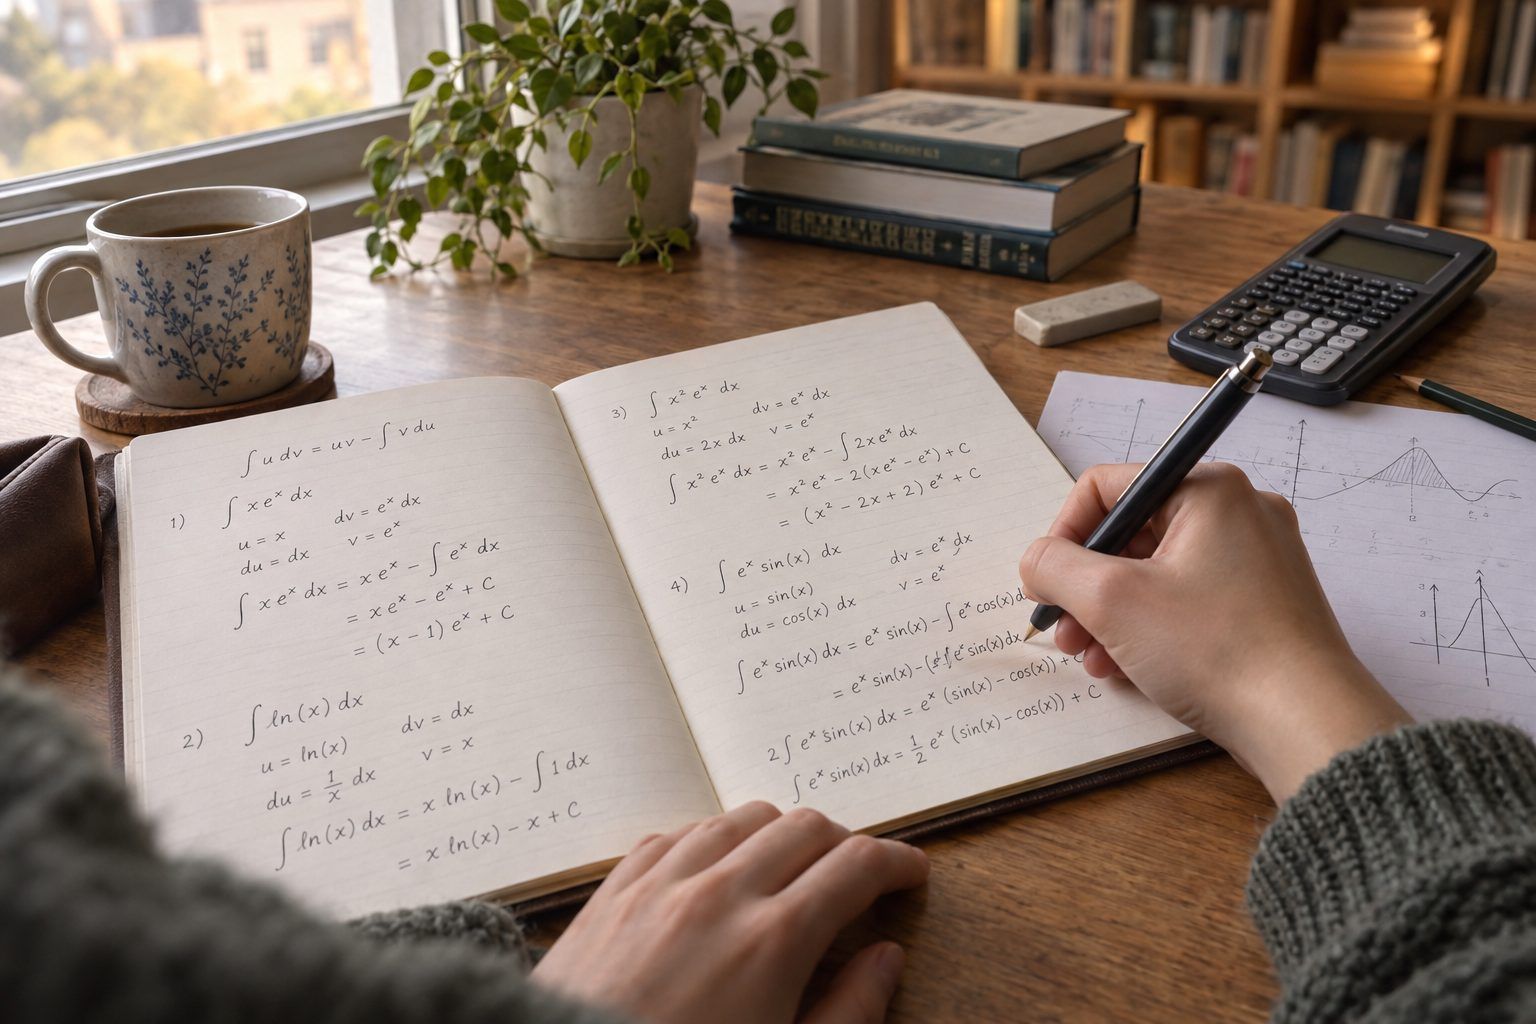 ∫ u dv = uv − ∫ v du
1) ∫ x eˣ dx
u = x dv = eˣ dx
du = dx v = eˣ
∫ x eˣ dx = x eˣ − ∫ eˣ dx
= x eˣ − eˣ + C
= (x − 1) eˣ + C
2) ∫ ln(x) dx
u = ln(x) dv = dx
du = 1/x dx v = x
∫ ln(x) dx = x ln(x) − ∫ 1 dx
= x ln(x) − x + C
3) ∫ x² eˣ dx
u = x² dv = eˣ dx
du = 2x dx v = eˣ
∫ x² eˣ dx = x² eˣ − ∫ 2x eˣ dx
= x² eˣ − 2(x eˣ − eˣ) + C
= (x² − 2x + 2) eˣ + C
4) ∫ eˣ sin(x) dx
u = sin(x) dv = eˣ dx
du = cos(x) dx v = eˣ
∫ eˣ sin(x) dx = eˣ sin(x) − ∫ eˣ cos(x) d
= eˣ sin(x) − ( eˣ sin(x) dx
2 ∫ eˣ sin(x) dx = eˣ (sin(x) − cos(x)) + C
∫ eˣ sin(x) dx = 1/2 eˣ (sin(x) − cos(x)) + C